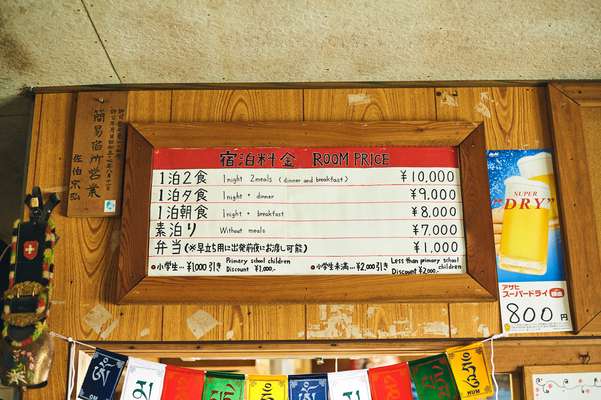 宿泊料金 ROOM PRICE
1泊2食 1night 2meals (dinner and breakfast) ¥10,000
1泊夕食 1night・dinner ¥9,000
1泊朝食 1night・breakfast ¥8,000
素泊り Without meals ¥7,000
弁当(※早立ち用に出発前夜にお渡し可能) ¥1,000
●小学生…¥1000引き Primary school children Discount ¥1,000-
●小学生未満…¥2,000引き Less than primary school children Discount ¥2,000-
簡易宿所営業
SUPER
"DRY"
アサヒ
スーパードライ
800円
OM
HUM